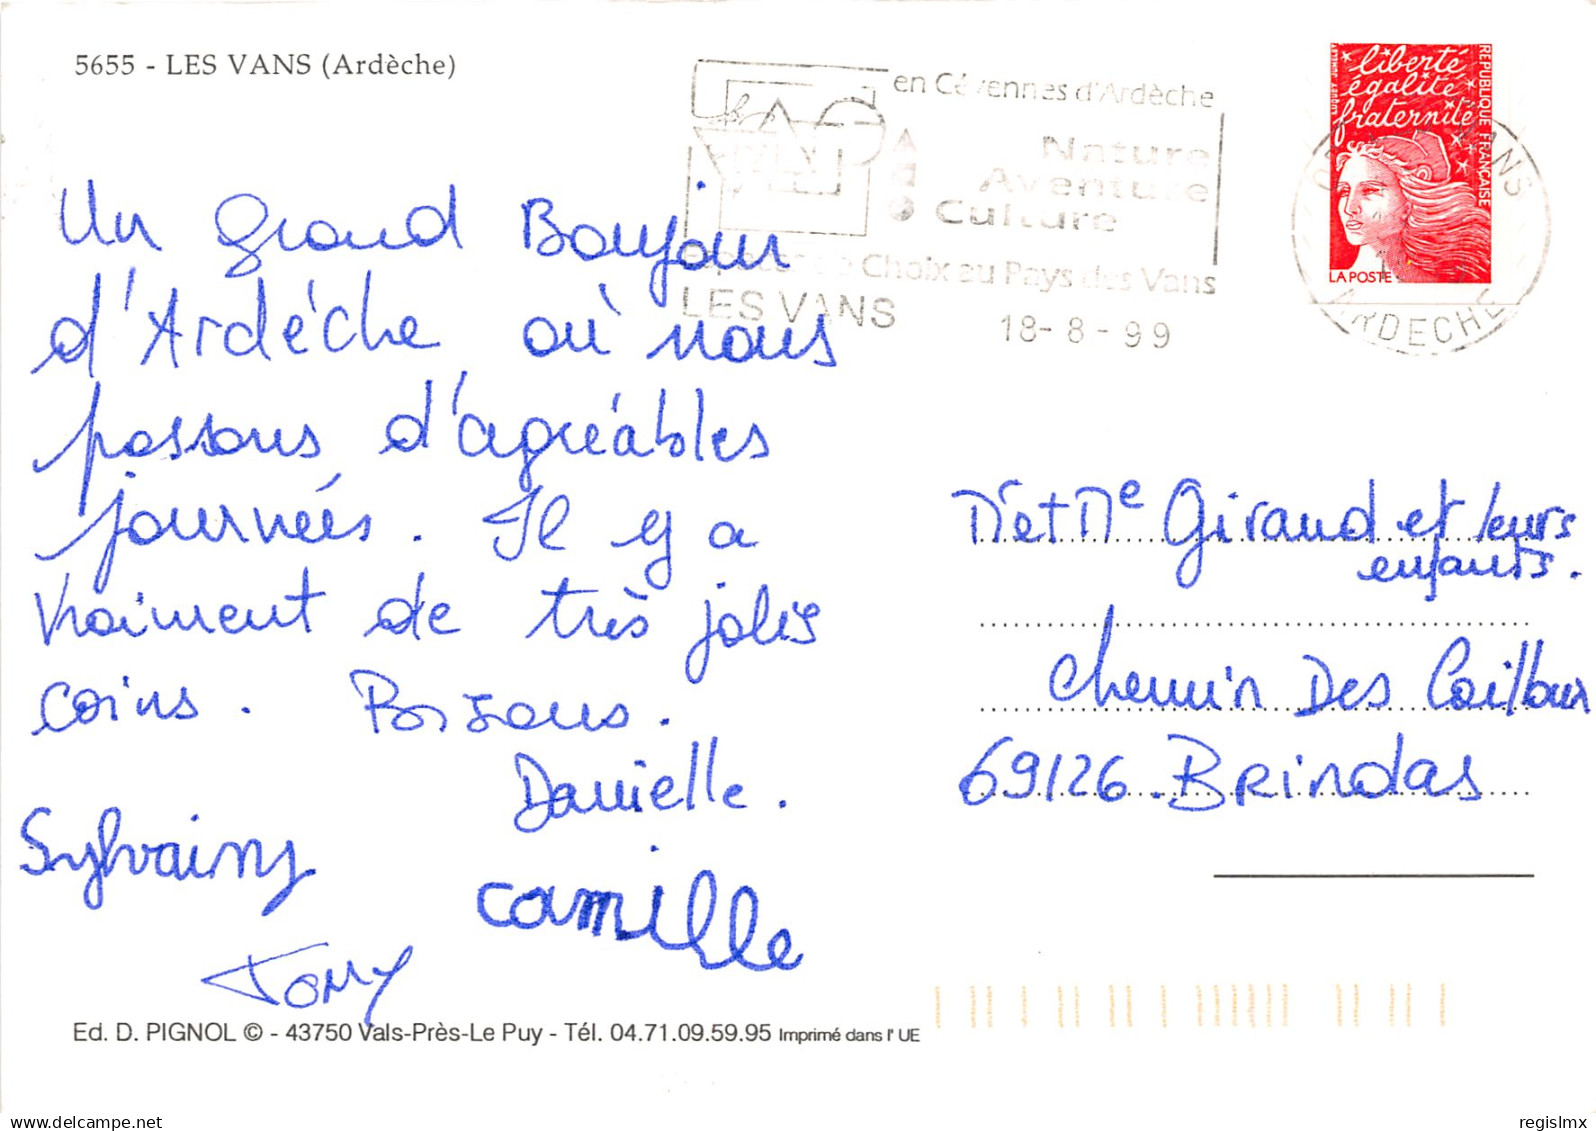 5655 - LES VANS (Ardèche)
en Cévennes d'Ardèche
Nature
Aventure
Culture
Choix au Pays des Vans
LES VANS
18-8-99
liberté
égalité
fraternité
REPUBLIQUE FRANÇAISE
LA POSTE
VANS
ARDECHE
Un grand Bonjour
d'Ardéche où nous
passons d'agréables
journées. Il y a
vraiment de très jolis
coins. Bisous.
Danielle.
Sylvainy
camille
Tony
Mr et Me Giraud et leurs
enfants.
Chemin Des Cailloux
69126 - BRindas
Ed. D. PIGNOL © - 43750 Vals-Près-Le Puy - Tél. 04.71.09.59.95 Imprimé dans l'UE
delcampe.net
regislmx